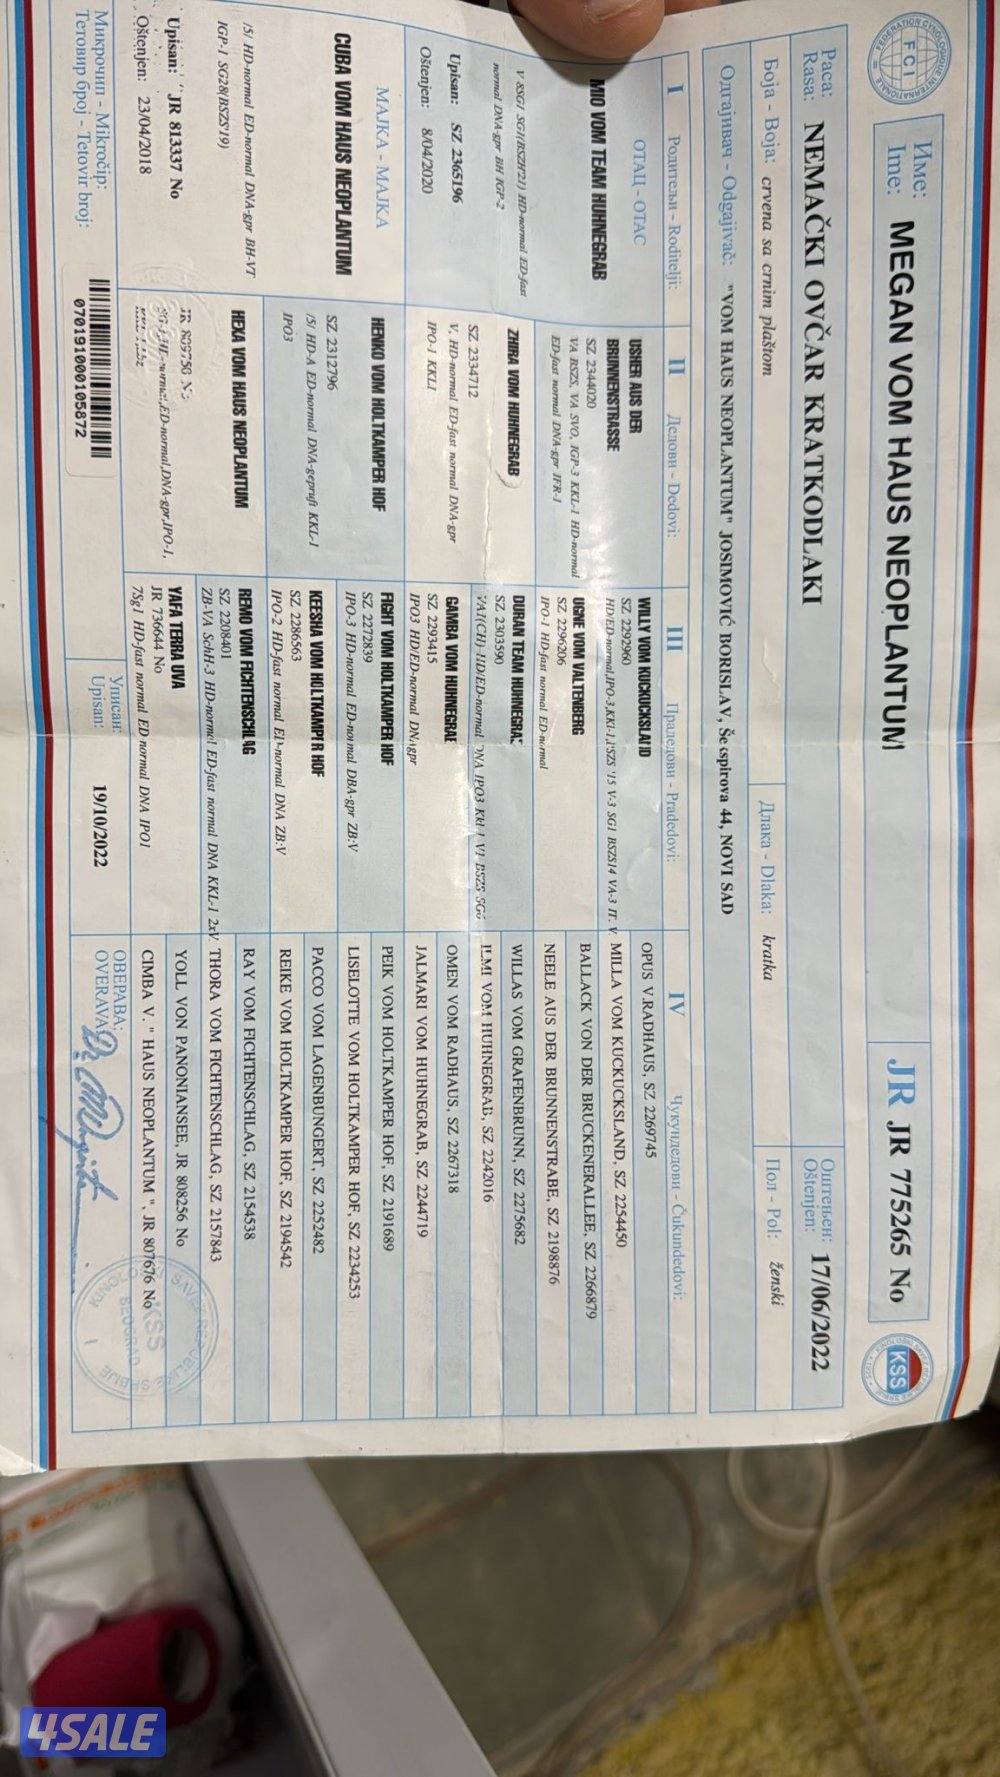 FEDERATION CYNOLOGIQUE INTERNATIONALE
FCI
Име:
Ime:
MEGAN VOM HAUS NEOPLANTUM
JR JR 775265 No
KSS
Раса:
Rasa:
NEMAČKI OVČAR KRATKODLAKI
Оштењен:
Oštenjen:
17/06/2022
Боја - Boja: crvena sa crnim plaštom
Длака - Dlaka: kratka
Пол - Pol: ženski
Одгајивач - Odgajivač: "VOM HAUS NEOPLANTUM" JOSIMOVIĆ BORISLAV, Šekspirova 44, NOVI SAD
I Родитељи - Roditelji:
II Дедови - Dedovi:
III Прадедови - Pradedovi:
IV Чукундедови - Čukundedovi:
ОТАЦ - OTAC
MIO VOM TEAM HUHNEGRAB
V 8SG1 SG1(BSZH21) HD-normal ED-fast
normal DNA-gpr BH IGP-2
Upisan: SZ 2365196
Oštenjen: 8/04/2020
МАЈКА - MAJKA
CUBA VOM HAUS NEOPLANTUM
/5/ HD-normal ED-normal DNA-gpr BH-VT
IGP-1 SG28(BSZS19)
Upisan: JR 813337 No
Oštenjen: 23/04/2018
USHER AUS DER
BRUNNENSTRASSE
SZ 2344020
VA BSZS, VA SVO, IGP-3 KKL-1 HD-normal
ED-fast normal DNA-gpr IFR-1
ZHIRA VOM HUHNEGRAB
SZ 2334712
V, HD-normal ED-fast normal DNA-gpr
IPO-1 KKL1
HENKO VOM HOLTKAMPER HOF
SZ 2312796
/5/ HD-A ED-normal DNA-gepruft KKL-1
IPO3
HEXA VOM HAUS NEOPLANTUM
JR 809750 No
HD-normal,ED-normal,DNA-gpr,IPO-1,
WILLY VOM KUCKUCKSLAND
SZ 2292960
HD/ED-normal,IPO-3,KKl-1,BSZS '15 V-3 SG1 BSZS14 VA-3 IT. V
UGNE VOM VALTENBERG
SZ 2296206
IPO-1 HD-fast normal ED-normal
DURAN TEAM HUHNEGRAB
SZ 2303590
VA1(CH)-HD/ED-normal DNA IPO3 Kkl-1 V1 BSZS SG6
GAMBA VOM HUHNEGRAB
SZ 2293415
IPO3 HD/ED-normal DNAgpr
FIGHT VOM HOLTKAMPER HOF
SZ 2272839
IPO-3 HD-normal ED-normal DBA-gpr ZB:V
KEESHA VOM HOLTKAMPER HOF
SZ 2286563
IPO-2 HD-fast normal ED-normal DNA ZB:V
REMO VOM FICHTENSCHLAG
SZ 2208401
ZB-VA SchH-3 HD-normal ED-fast normal DNA KKL-1 2xV
YAFA TERRA UVA
JR 736644 No
7Sg1 HD-fast normal ED-normal DNA IPO1
OPUS V.RADHAUS, SZ 2269745
MILLA VOM KUCKUCKSLAND, SZ 2254450
BALLACK VON DER BRUCKENERALLEE, SZ 2266879
NEELE AUS DER BRUNNENSTRABE, SZ 2198876
WILLAS VOM GRAFENBRUNN, SZ 2275682
ILMI VOM HUHNEGRAB, SZ 2242016
OMEN VOM RADHAUS, SZ 2267318
JALMARI VOM HUHNEGRAB, SZ 2244719
PEIK VOM HOLTKAMPER HOF, SZ 2191689
LISELOTTE VOM HOLTKAMPER HOF, SZ 2234253
PACCO VOM LAGENBUNGERT, SZ 2252482
REIKE VOM HOLTKAMPER HOF, SZ 2194542
RAY VOM FICHTENSCHLAG, SZ 2154538
THORA VOM FICHTENSCHLAG, SZ 2157843
YOLL VON PANONIANSEE, JR 808256 No
CIMBA V. " HAUS NEOPLANTUM ", JR 807676 No
Микрочип - Mikročip:
Тетовир број - Tetovir broj:
070191000105872
Уписан:
Upisan:
19/10/2022
ОВЕРАВА:
OVERAVA:
KINOLOŠKI SAVEZ REPUBLIKE SRBIJE
KSS
BEOGRAD
1
4SALE